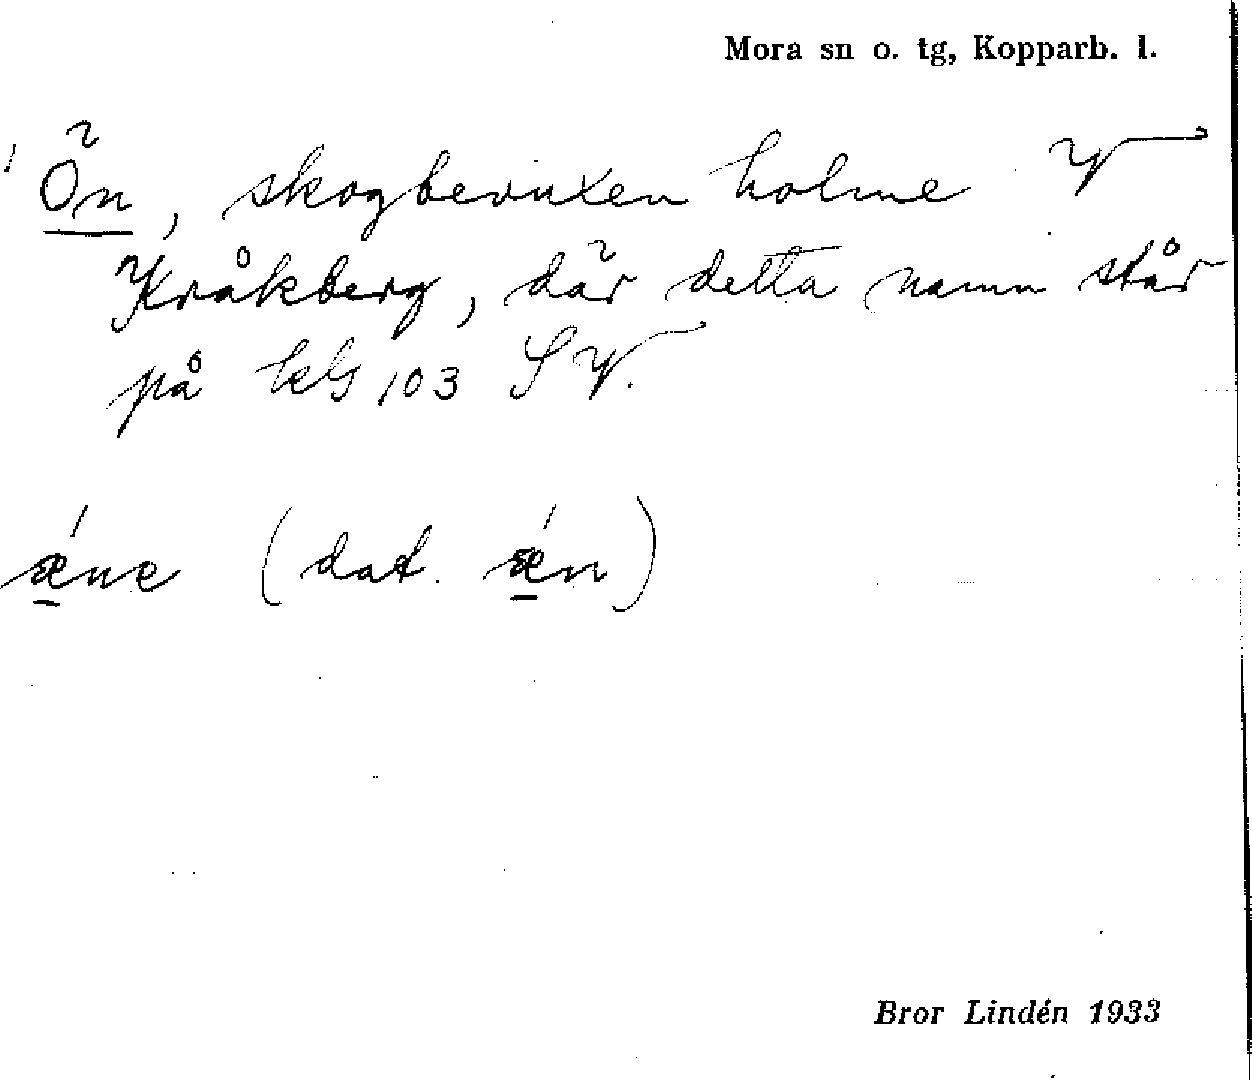 Mora sn o. tg, Kopparb. l.
Ön, skogbevuxen holme V
Kråkberg, där detta namn står
på kbl 103 SV.
ǽne (dat. ǽn)
Bror Lindén 1933